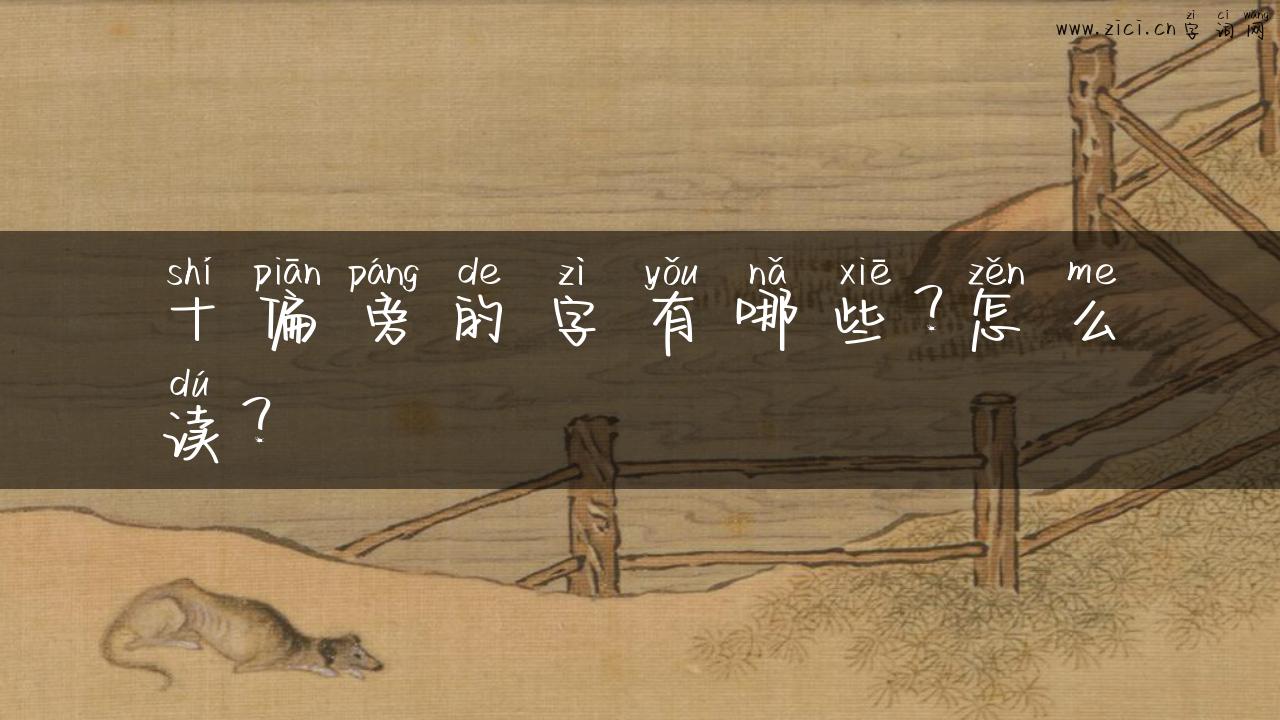 zì cí wǎng
www.zici.cn 字词网
shí piān páng de zì yǒu nǎ xiē zěn me
十偏旁的字有哪些？怎么
dú
读？